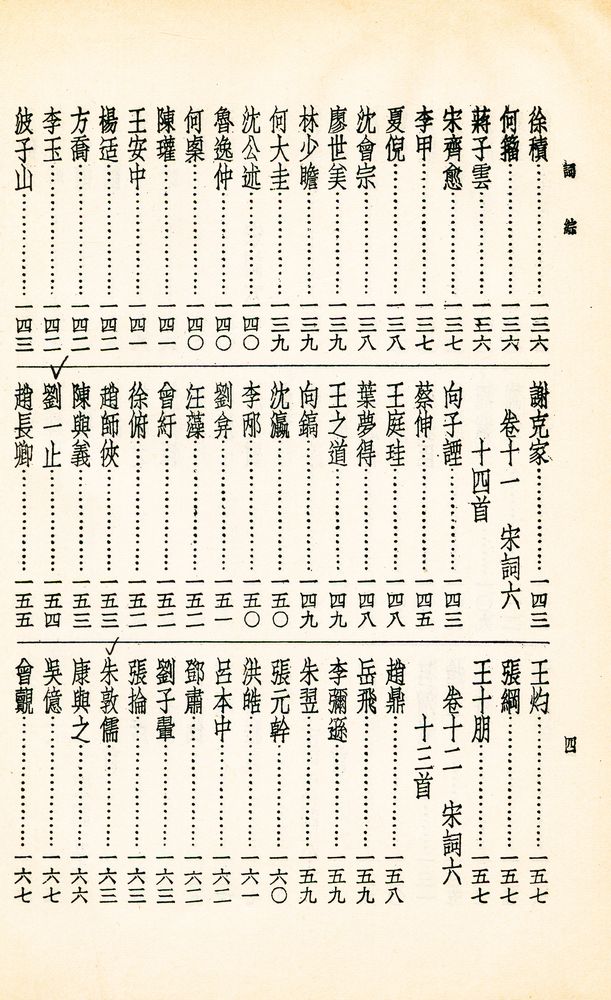 詞綜
徐積⋯⋯一三六
何籀⋯⋯一三六
蔣子雲⋯⋯一三六
宋齊愈⋯⋯一三七
李甲⋯⋯一三七
夏倪⋯⋯一三八
沈會宗⋯⋯一三八
廖世美⋯⋯一三九
林少瞻⋯⋯一三九
何大圭⋯⋯一三九
沈公述⋯⋯一四〇
魯逸仲⋯⋯一四〇
何㮚⋯⋯一四〇
陳瓘⋯⋯一四一
王安中⋯⋯一四一
楊适⋯⋯一四二
方喬⋯⋯一四二
李玉⋯⋯一四二
波子山⋯⋯一四三
謝克家⋯⋯一四三
卷十一 宋詞六
十四首
向子諲⋯⋯一四三
蔡伸⋯⋯一四五
王庭珪⋯⋯一四八
葉夢得⋯⋯一四八
王之道⋯⋯一四九
向鎬⋯⋯一四九
沈瀛⋯⋯一五〇
李邴⋯⋯一五〇
劉弇⋯⋯一五一
汪藻⋯⋯一五二
曾紆⋯⋯一五二
徐俯⋯⋯一五二
趙師俠⋯⋯一五三
陳與義⋯⋯一五三
劉一止⋯⋯一五四
趙長卿⋯⋯一五五
王灼⋯⋯一五七
張綱⋯⋯一五七
王十朋⋯⋯一五七
卷十二 宋詞六
十三首
趙鼎⋯⋯一五八
岳飛⋯⋯一五九
李彌遜⋯⋯一五九
朱翌⋯⋯一五九
張元幹⋯⋯一六〇
洪皓⋯⋯一六一
呂本中⋯⋯一六二
鄧肅⋯⋯一六二
劉子翬⋯⋯一六二
張掄⋯⋯一六三
朱敦儒⋯⋯一六三
康與之⋯⋯一六六
吳億⋯⋯一六七
曾覿⋯⋯一六七
四